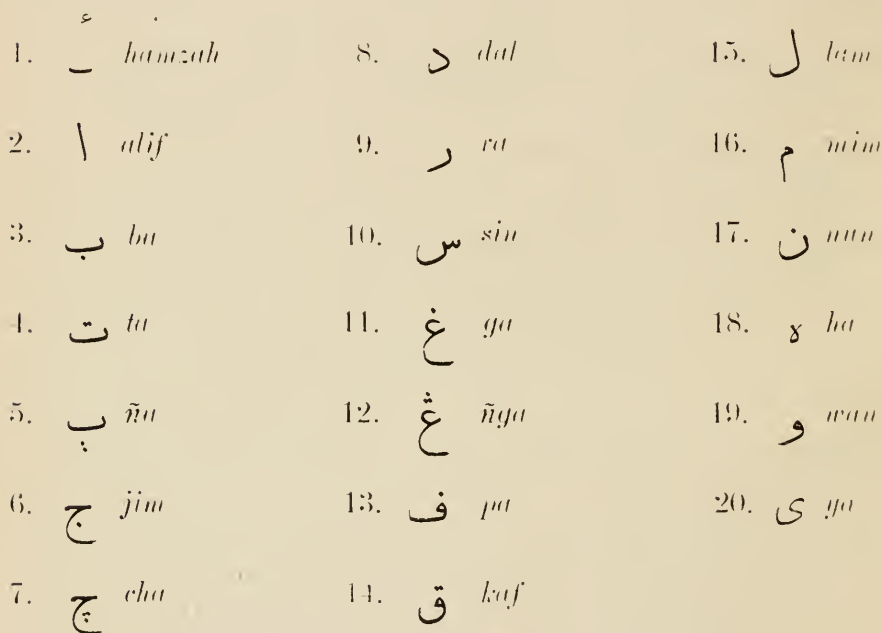 1. ـٔ hamzah
2. ا alif
3. ب ba
4. ت ta
5. پ ña
6. ج jim
7. چ cha
8. د dal
9. ر ra
10. س sin
11. غ ga
12. ڠ ñga
13. ف pa
14. ق kaf
15. ل lam
16. م mim
17. ن nun
18. ه ha
19. و wau
20. ى ya